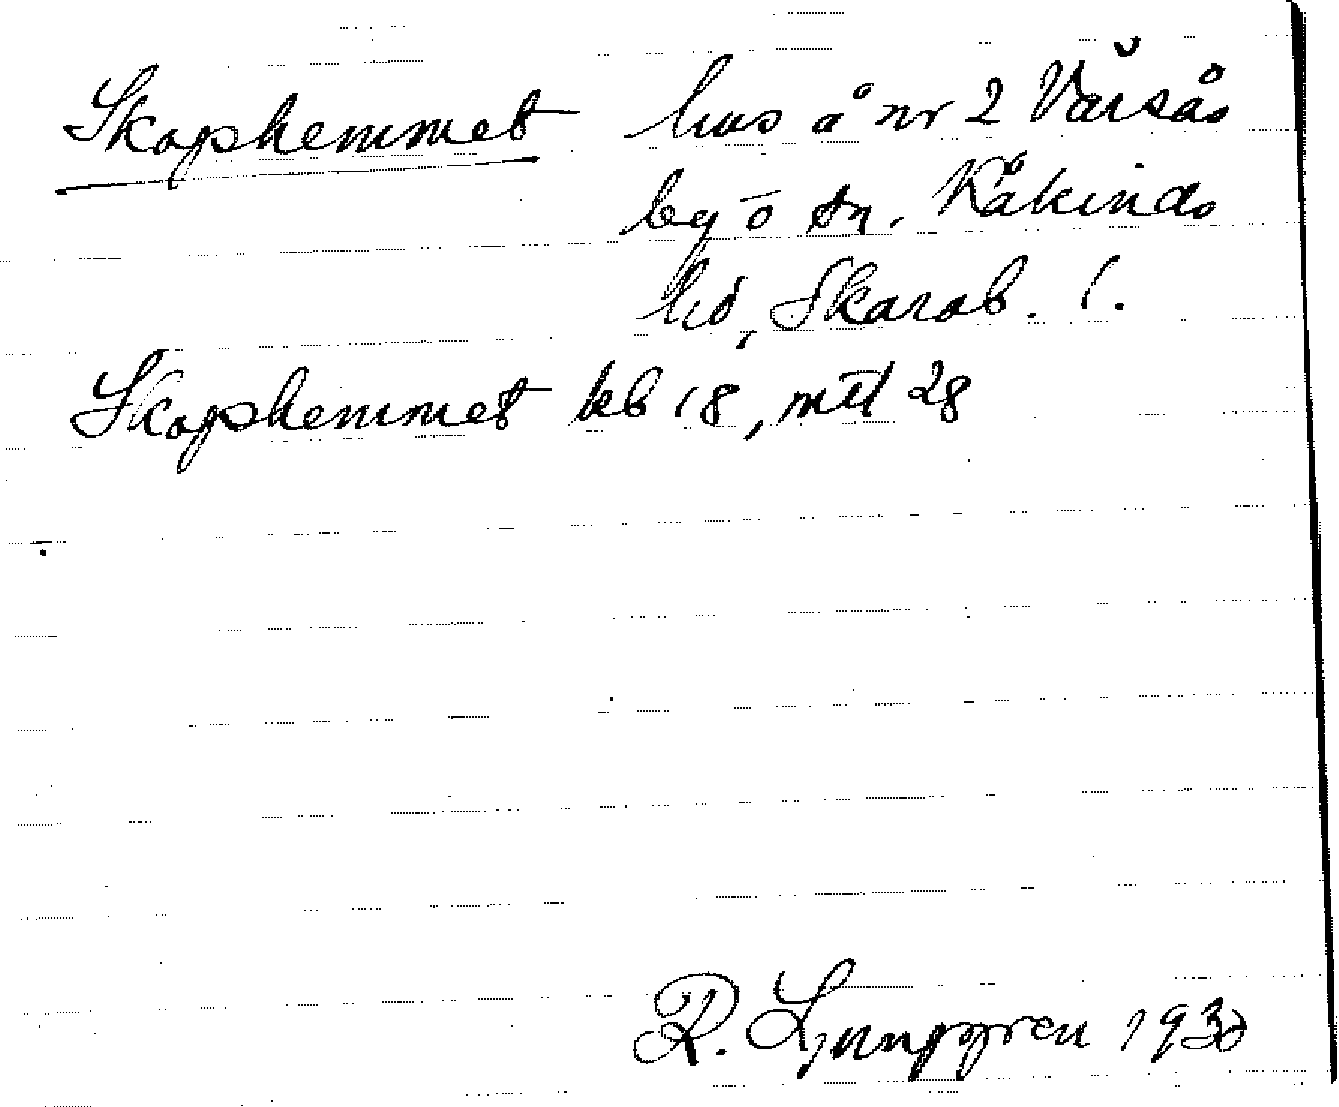 Skophemmet hus å nr 2 Varsås
by o sn. Kåkinds
hd, Skarab. l.
Skophemmet kb 18, mtl 28
R. Ljunggren 1930